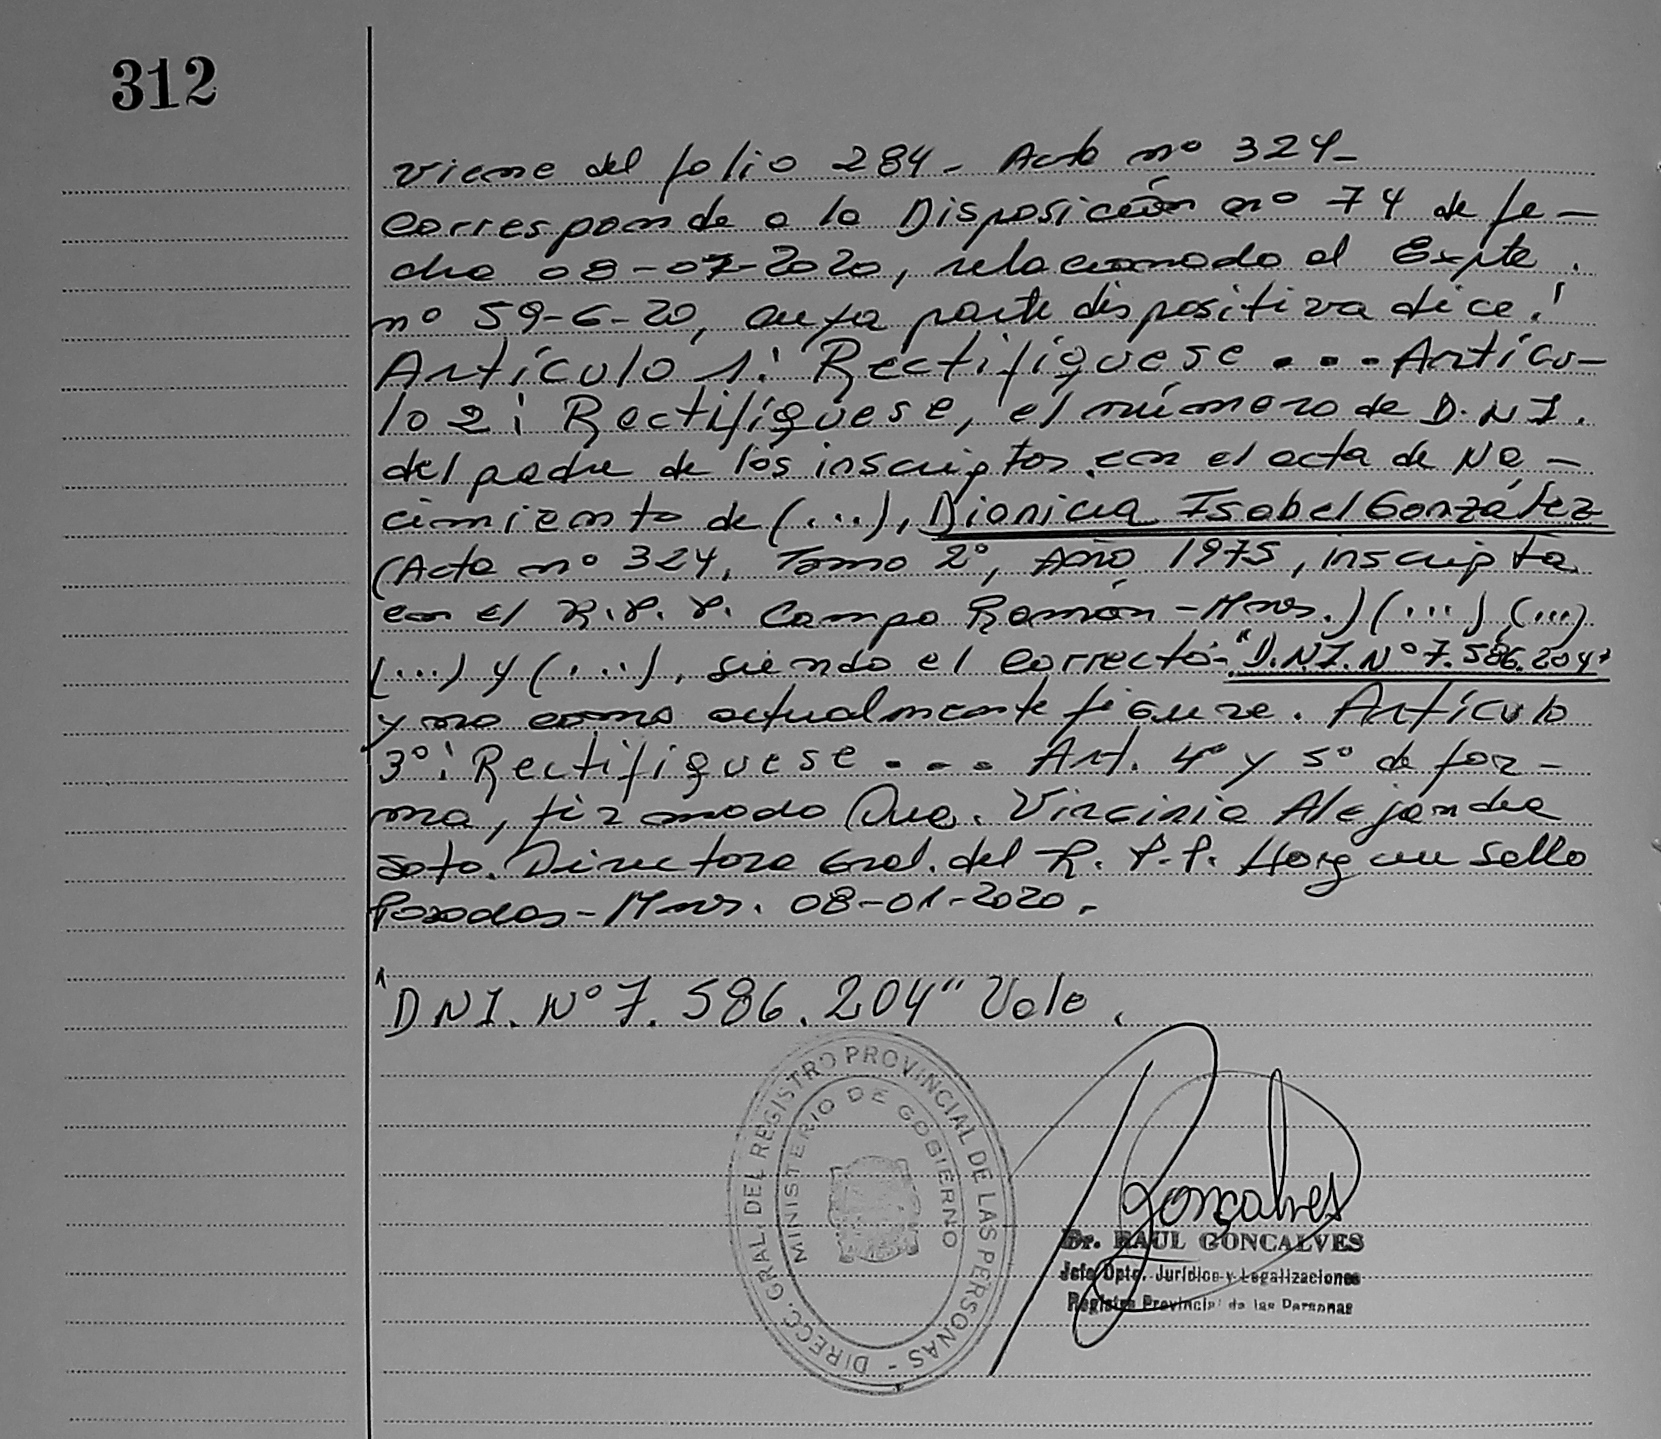 312
Viene del folio 284 - Acta nº 324 -
Corresponde a la Disposición nº 74 de fe -
cha 08-07-2020, relacionado al Expte.
nº 59-G-20, cuya parte dispositiva dice:
Artículo 1: Rectifíquese ... Artícu -
lo 2: Rectifíquese, el número de D.N.I.
del padre de los inscriptos en el acta de Na -
cimiento de (...), Dionicia Isabel González
(Acta nº 324, Tomo 2º, Año 1975, inscripta
en el R.P.P. Campo Ramón - Mnes.) (...) (...)
(...) y (...), siendo el correcto: "D.N.I. Nº 7.586.204"
y no como actualmente figura. Artículo
3º: Rectifíquese ... Art. 4º y 5º de for -
ma, firmado Dra. Virginia Alejandra
Soto. Directora Gral. del R.P.P. Hay un Sello
Posadas - Mnes. 08-01-2020.
"DNI. Nº 7.586.204" Vale.
DIRECC. GRAL. DEL REGISTRO PROVINCIAL DE LAS PERSONAS -
MINISTERIO DE GOBIERNO
Goncalves
Dr. RAUL GONCALVES
Jefe Dpto. Jurídico y Legalizaciones
Registro Provincial de las Personas